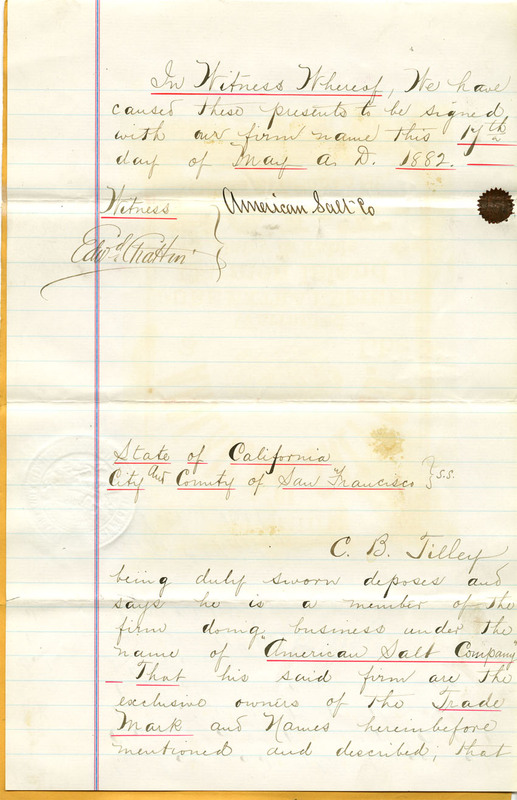 In Witness Whereof, We have
caused these presents to be signed
with our firm name this 17th
day of May A. D. 1882.
Witness
American Salt Co
Edwd Chattin
State of California
City And County of San Francisco } S.S.
C. B. Tilley
being duly sworn deposes and
says he is a member of the
firm doing business under the
name of "American Salt Company"
That his said firm are the
exclusive owners of the Trade
Mark and Names hereinbefore
mentioned and described; that